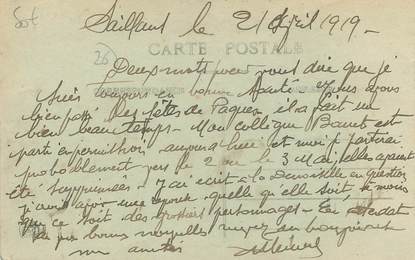 Saillans le 21 Avril 1919 -
CARTE POSTALE
Deux mots pour vous dire que je
suis toujours en bonne santé. Nous avons
bien passé les fêtes de Paques, il a fait un
bien beau temps - Mon collègue est
parti en permission, aujourd'hui et moi je partirai
probablement vers le 2 ou le 3 Mai, elles avaient
été supprimées - J'ai écrit à la Demoiselle en question
j'aurai une réponse quelle qu'elle soit, à moins
que ce soit des grossiers personnages - En attendant
de vos bonnes nouvelles recevez un bonjour
mon amitié